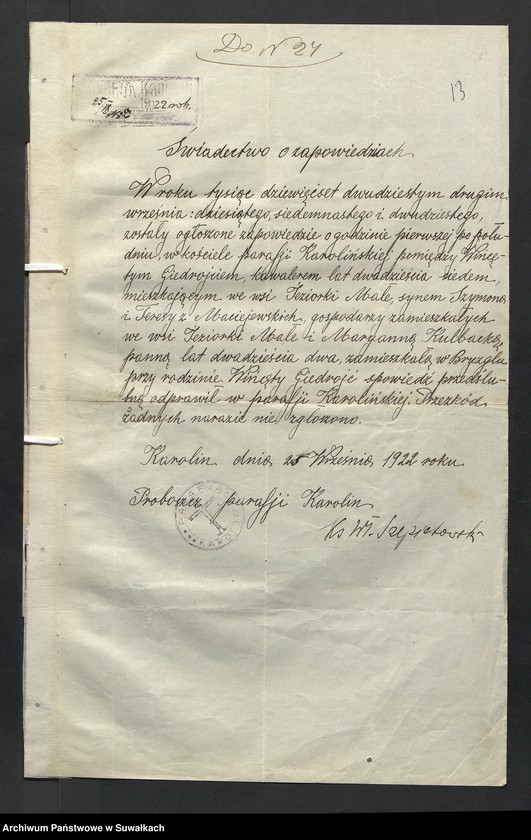 Do N 24
13
25/IX 1922
1922 rok.
Świadectwo o zapowiedziach
W roku tysiąc dziewięćset dwudziestym drugim
września: dziesiątego, siedemnastego i dwudziestego,
zostały ogłoszone zapowiedzie o godzinie pierwszej po połu-
dniu, w kościele parafji Karolińskiej pomiędzy Wincę-
tym Giedrojciem, kawalerem lat dwadzieścia siedem,
mieszkającym we wsi Jeziorki Małe, synem Szymona
i Teresy z Maciejewskich, gospodarzy zamieszkałych
we wsi Jeziorki Małe i Maryanną Kulbacką,
panną lat dwadzieścia dwa, zamieszkałą w Bryzglu
przy rodzinie. Wincęty Giedrojć spowiedź przedślu-
bną odprawił w parafji Karolińskiej. Przeszkód
żadnych narazie nie zgłoszono.
Karolin dnia 25 Września 1922 roku
Proboszcz parafji Karolin
Ks Wł.
Archiwum Państwowe w Suwałkach